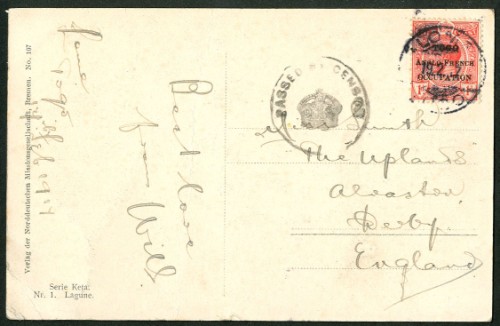 Verlag der Norddeutschen Missionsgesellschaft, Bremen. No. 107
Lome
Togo
1914
Best love
from Will
Serie Keta:
Nr. 1. Lagune.
PASSED BY CENSOR
TOGO
ANGLO-FRENCH
OCCUPATION
Smith
The Uplands
Alvaston
Derby.
England